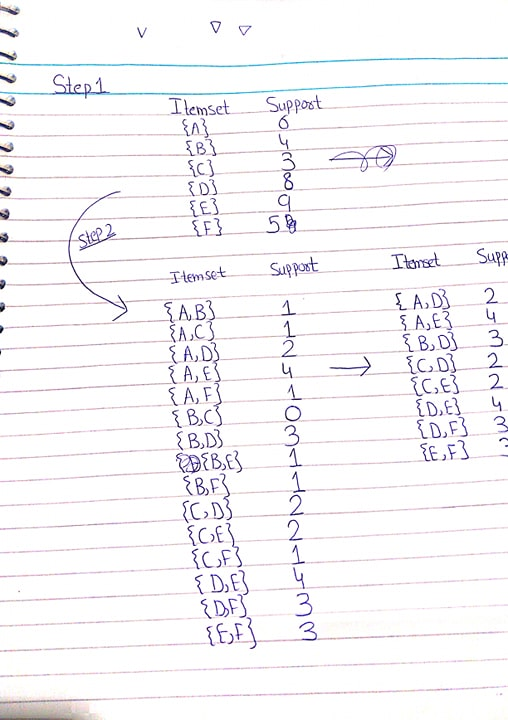 Step 1
Itemset Support
{A} 6
{B} 4
{C} 3
{D} 8
{E} 9
{F} 5
Step 2
Itemset Support
{A,B} 1
{A,C} 1
{A,D} 2
{A,E} 4
{A,F} 1
{B,C} 0
{B,D} 3
{B,E} 1
{B,F} 1
{C,D} 2
{C,E} 2
{C,F} 1
{D,E} 4
{D,F} 3
{E,F} 3
Itemset Supp
{A,D} 2
{A,E} 4
{B,D} 3
{C,D} 2
{C,E} 2
{D,E} 4
{D,F} 3
{E,F} 3